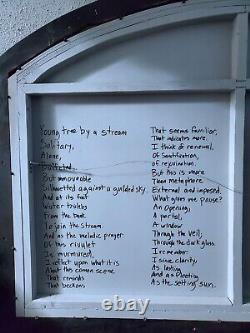 Young tree by a stream
Solitary,
Alone,
But immoveable
Silhouetted against a guilded sky.
And at its foot
Water trickles
From the bank
To join the stream
And as the melodic prayer
Of this rivulet
Is murmured,
I reflect upon what it is
About this common scene
That reminds
That beckons
That seems familiar,
That indicates more.
I think of renewal,
Of Sanctification,
of rejuvenation.
But this is more
Than metaphore
External and imposed.
What gives me pause?
An Opening,
A portal,
A window
Through the Veil;
Through the dark glass
I remember.
I see, clarity,
As lasting
And as fleeting
As the setting sun.